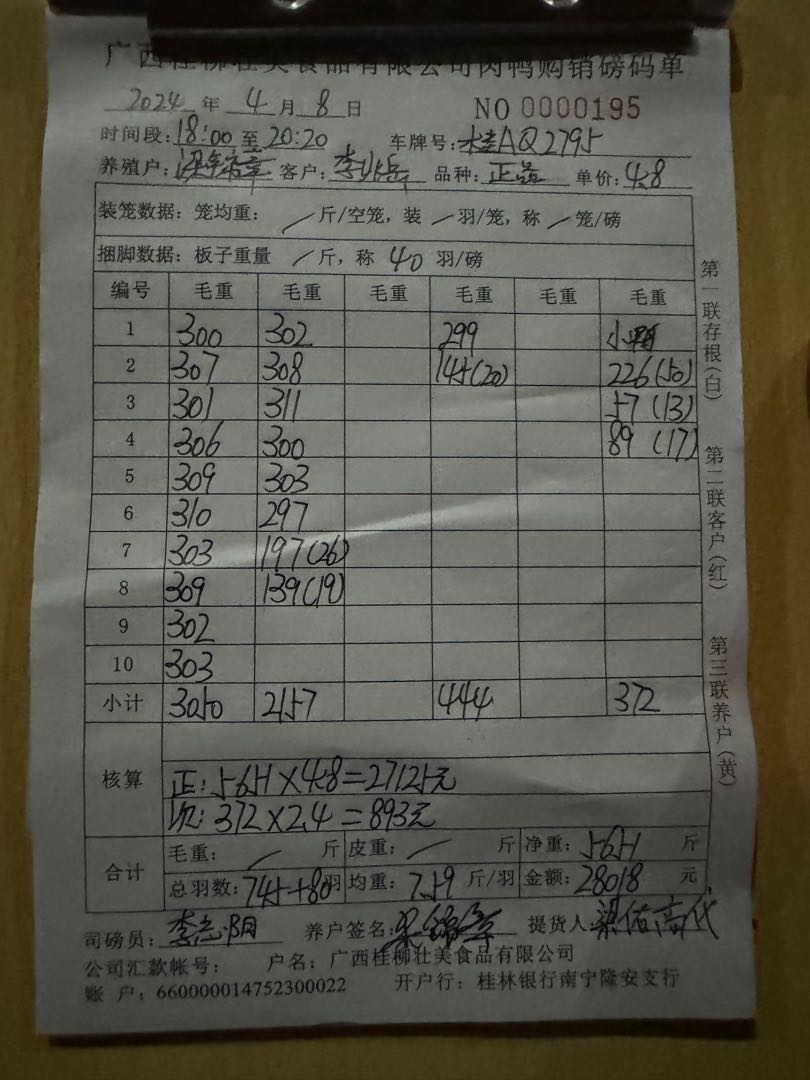 广西桂柳壮美食品有限公司肉鸭购销磅码单
2024 年 4 月 8 日 NO 0000195
时间段: 18:00 至 20:20 车牌号: 桂AQ2795
养殖户: 梁锦 客户: 李 品种: 正 单价: 4.8
装笼数据: 笼均重: / 斤/空笼, 装 / 羽/笼, 称 / 笼/磅
捆脚数据: 板子重量 / 斤, 称 40 羽/磅
编号 毛重 毛重 毛重 毛重 毛重 毛重
1 300 302 299 小鸭
2 307 308 145(20) 226(50)
3 301 311 57(13)
4 306 300 89(17)
5 309 303
6 310 297
7 303 197(26)
8 309 139(19)
9 302
10 303
小计 3050 2157 444 372
核算
正: 5651×4.8=27125元
次: 372×2.4=893元
合计
毛重: / 斤 皮重: / 斤 净重: 5651 斤
总羽数: 745+80 羽 均重: 7.59 斤/羽 金额: 28018 元
司磅员: 李志阴 养户签名: 梁锦 提货人: 高代
公司汇款帐号: 户名: 广西桂柳壮美食品有限公司
账户: 660000014752300022 开户行: 桂林银行南宁隆安支行
第一联存根(白)
第二联客户(红)
第三联养户(黄)